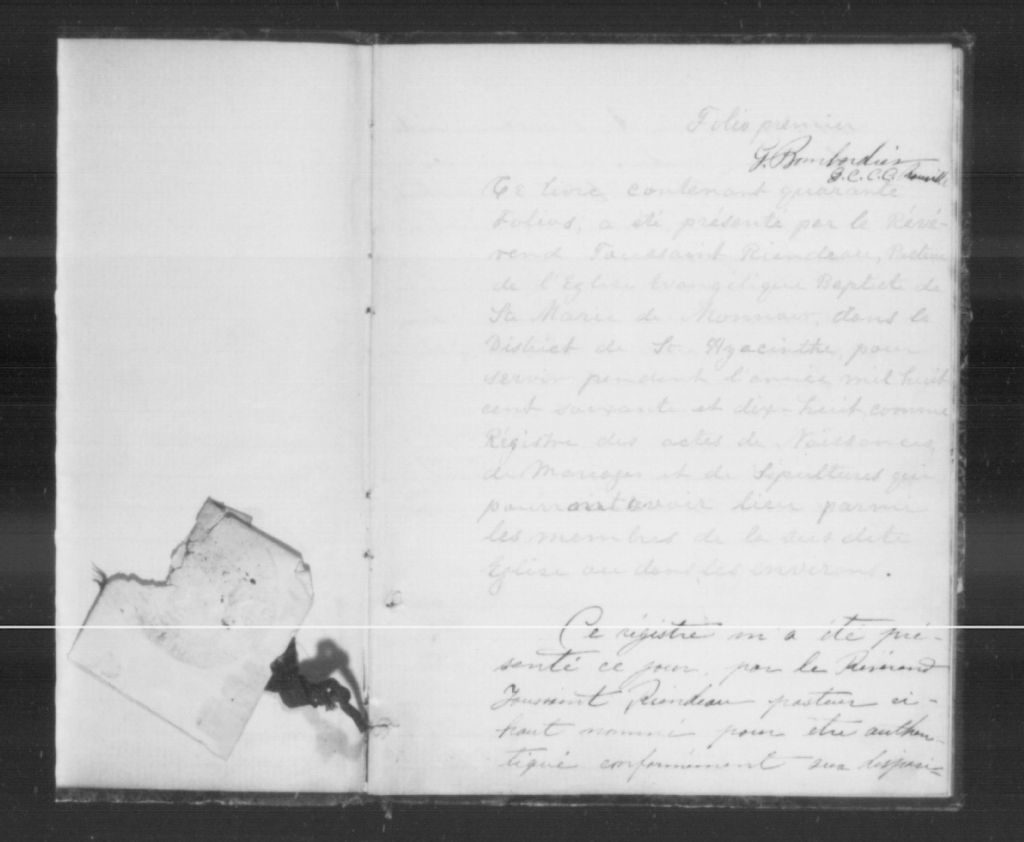 Folio premier
G. Bombardier
G.C.C.C. Rouville
Ce livre, contenant quarante
Folios, a été présenté par le Révé-
rend Toussaint Riendeau, Pasteur
de l'Eglise Evangélique Baptiste de
Ste Marie de Monnoir, dans le
District de St Hyacinthe, pour
servir pendant l'année mil huit
cent soixante et dix-huit, comme
Régistre des actes de Naissances,
de Mariages et de Sépultures qui
pourront avoir lieu parmi
les membres de la sus dite
Eglise ou dans les environs.
Ce régistre m'a été pré-
senté ce jour, par le Révérend
Toussaint Riendeau pasteur ci-
haut nommé pour être authen-
tiqué conformément aux disposi-